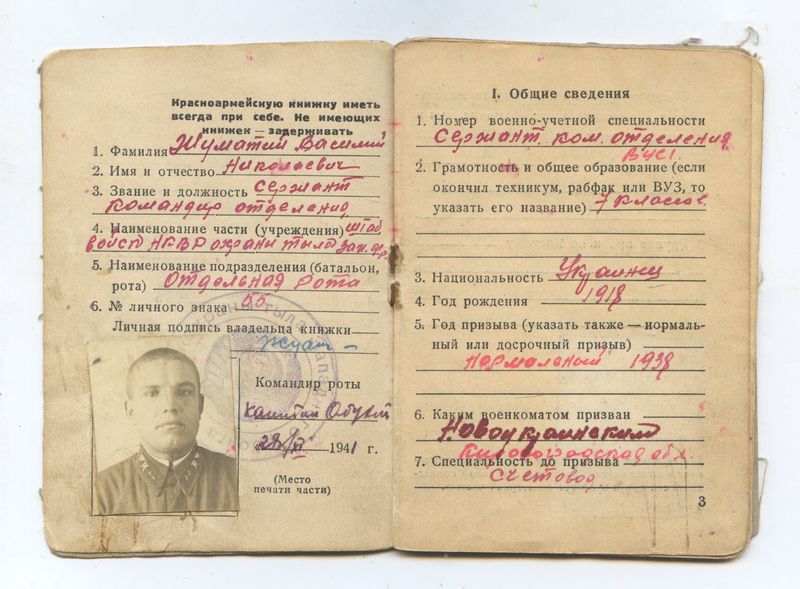 Красноармейскую книжку иметь
всегда при себе. Не имеющих
книжек — задерживать
1. Фамилия Жуматий Василий
2. Имя и отчество Николаевич
3. Звание и должность Сержант
командир отделения
4. Наименование части (учреждения) штаб
войск НКВД охраны тыла Зап. фр.
5. Наименование подразделения (батальон,
рота) Отдельная рота
6. № личного знака 55
Личная подпись владельца книжки
Командир роты
капитан
28/XI 1941 г.
(Место
печати части)
I. Общие сведения
1. Номер военно-учетной специальности
Сержант ком. отделения
ВУС1.
2. Грамотность и общее образование (если
окончил техникум, рабфак или ВУЗ, то
указать его название) 7 классов
3. Национальность Украинец
4. Год рождения 1918
5. Год призыва (указать также — нормаль-
ный или досрочный призыв)
нормальный 1938
6. Каким военкоматом призван
Новоукраинским
Кировоградская обл.
7. Специальность до призыва
Счетовод
3